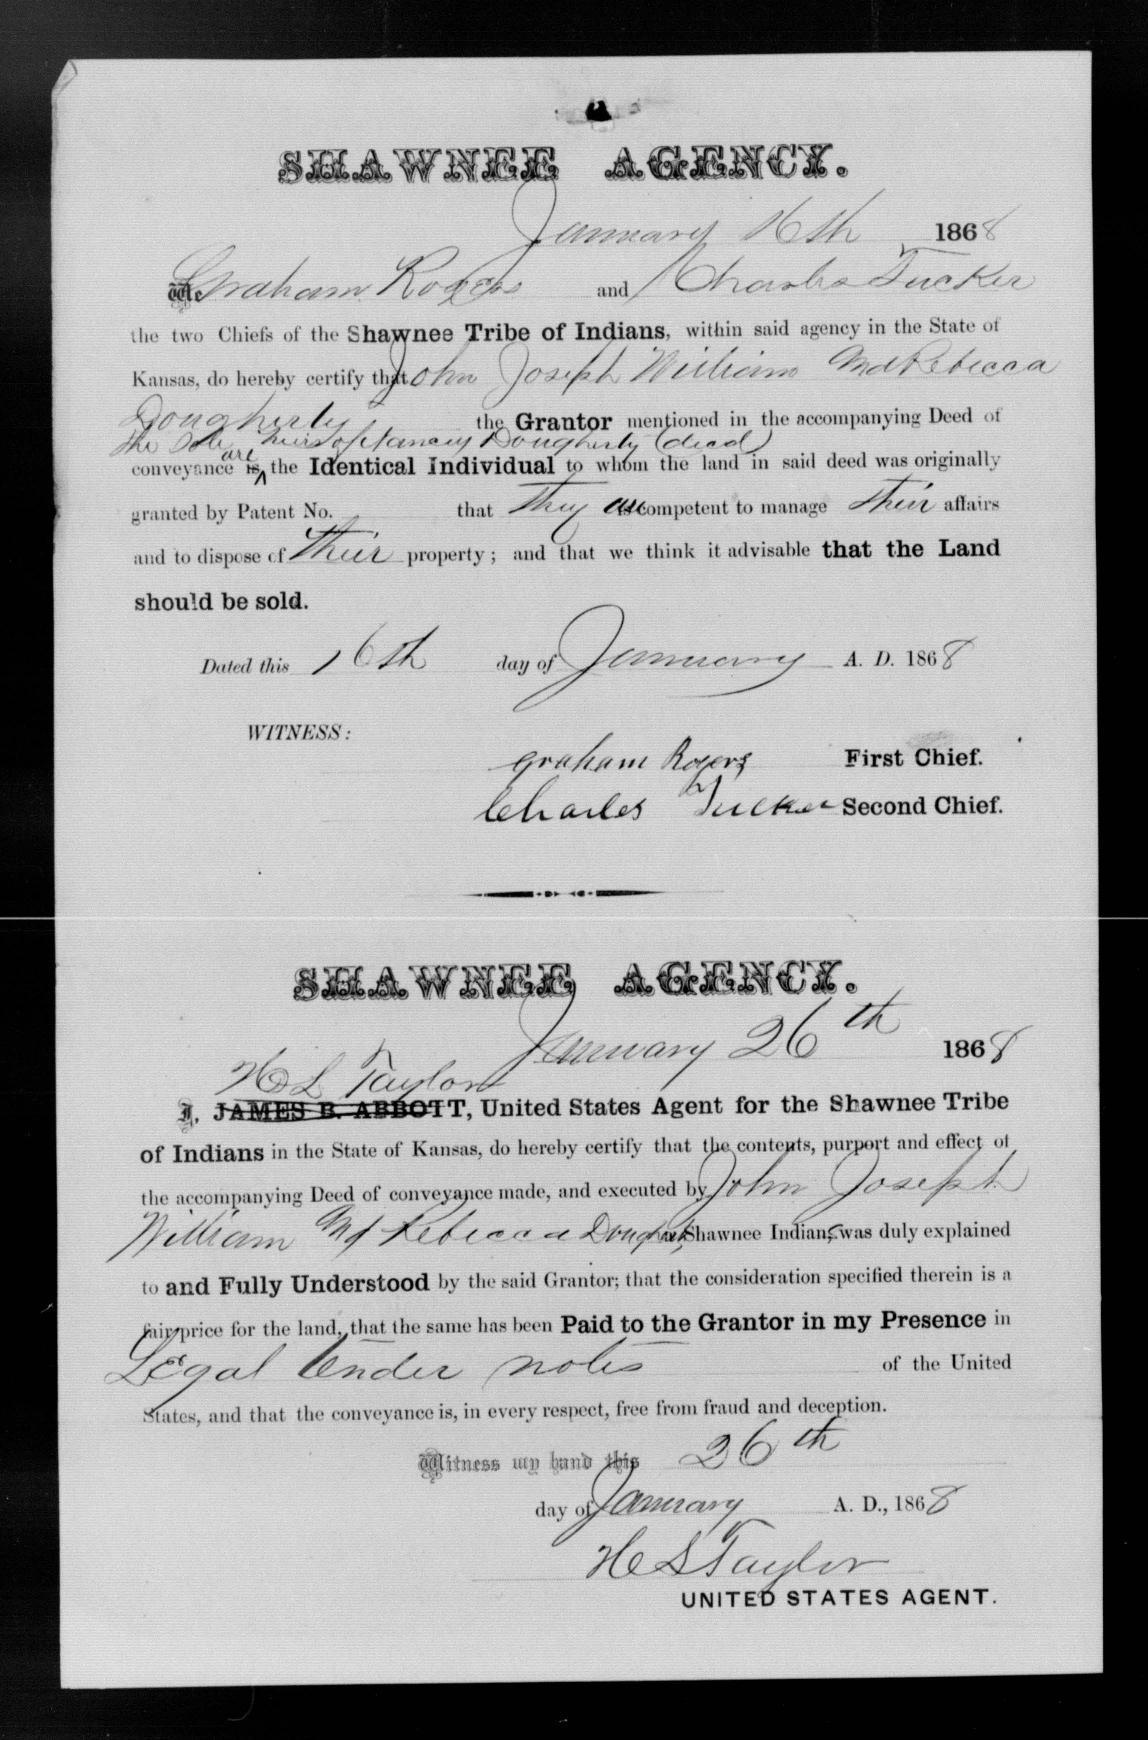 SHAWNEE AGENCY.
January 16th 1868
We Graham Rogers and Charles Tucker
the two Chiefs of the Shawnee Tribe of Indians, within said agency in the State of
Kansas, do hereby certify that John Joseph William and Rebecca
Dougherty the Grantor mentioned in the accompanying Deed of
the Sole heirs of Nancy Dougherty (dead)
are
conveyance is, the Identical Individual to whom the land in said deed was originally
granted by Patent No. that they are competent to manage their affairs
and to dispose of their property; and that we think it advisable that the Land
should be sold.
Dated this 16th day of January A. D. 1868
WITNESS:
Graham Rogers First Chief.
Charles Tucker Second Chief.
SHAWNEE AGENCY.
January 26th 1868
H L Taylor
I, JAMES B. ABBOTT, United States Agent for the Shawnee Tribe
of Indians in the State of Kansas, do hereby certify that the contents, purport and effect of
the accompanying Deed of conveyance made, and executed by John Joseph
William and Rebecca Dougherty a Shawnee Indians was duly explained
to and Fully Understood by the said Grantor; that the consideration specified therein is a
fair price for the land, that the same has been Paid to the Grantor in my Presence in
Legal tender notes of the United
States, and that the conveyance is, in every respect, free from fraud and deception.
Witness my hand this 26th
day of January A. D., 1868
H S Taylor
UNITED STATES AGENT.